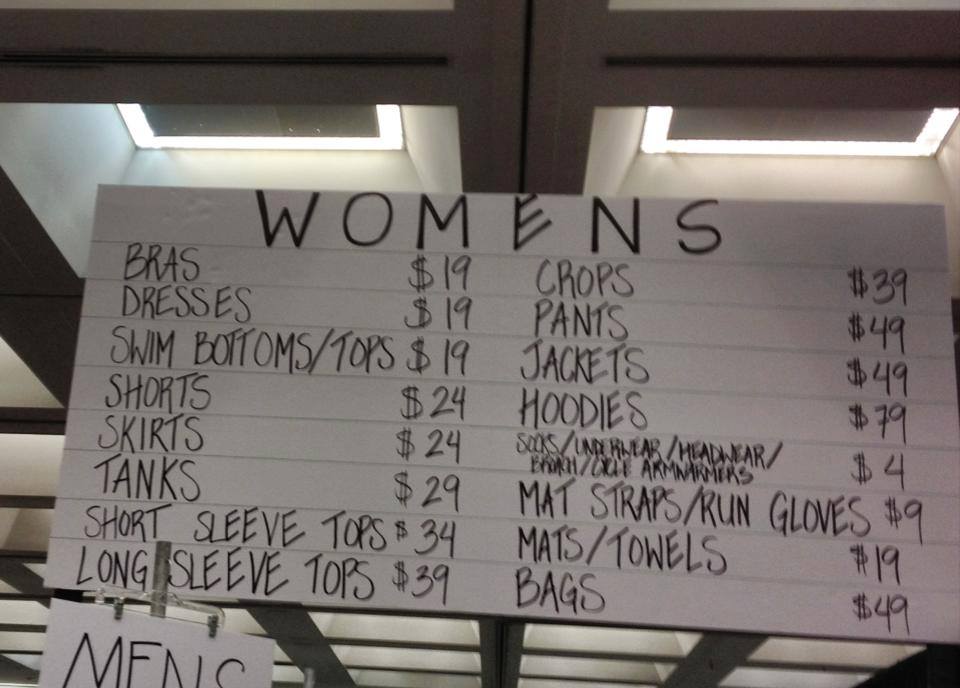 WOMENS
BRAS $19
DRESSES $19
SWIM BOTTOMS/TOPS $19
SHORTS $24
SKIRTS $24
TANKS $29
SHORT SLEEVE TOPS $34
LONG SLEEVE TOPS $39
CROPS $39
PANTS $49
JACKETS $49
HOODIES $79
SOCKS/UNDERWEAR/HEADWEAR/
/CYCLE ARMWARMERS $4
MAT STRAPS/RUN GLOVES $9
MATS/TOWELS $19
BAGS $49
MENS